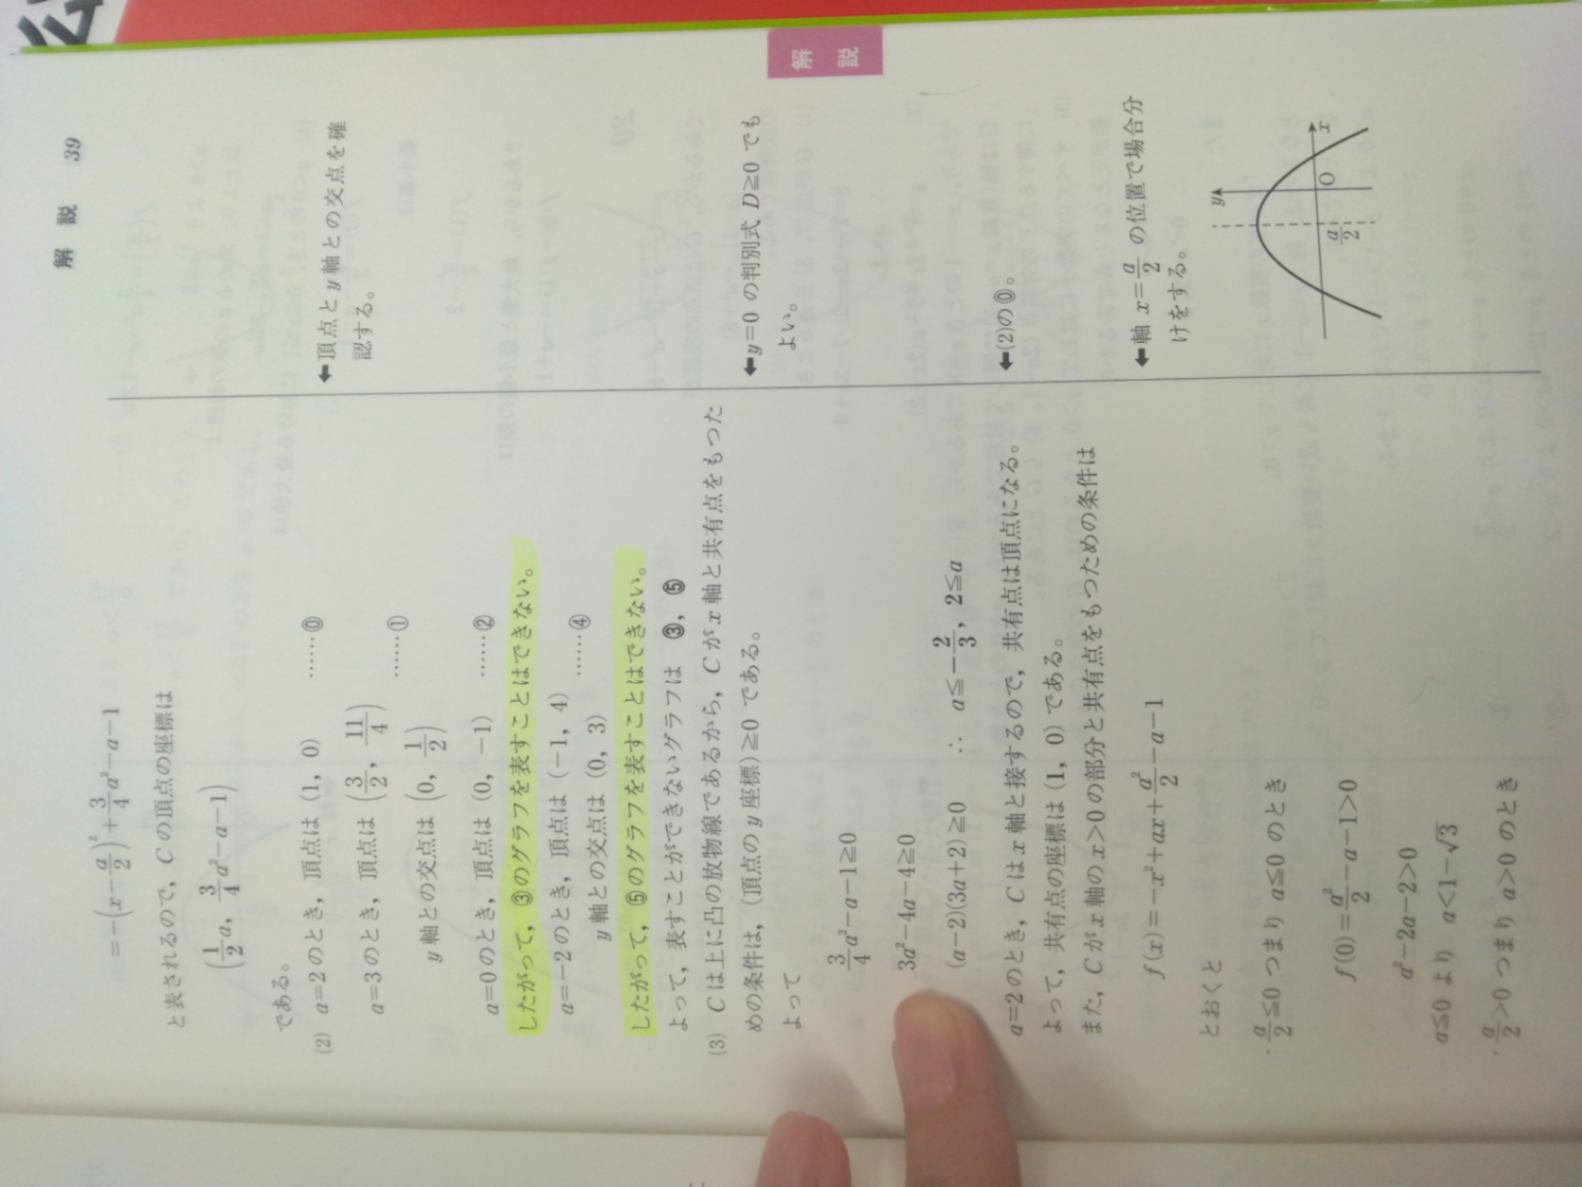 解説 39
=−(x−a/2)²+3/4a²−a−1
と表されるので，Cの頂点の座標は
(1/2a, 3/4a²−a−1)
である。
(2) a=2のとき，頂点は(1, 0) ……⓪
a=3のとき，頂点は(3/2, 11/4)
y軸との交点は(0, 1/2) ……①
a=0のとき，頂点は(0, −1) ……②
したがって，③のグラフを表すことはできない。
a=−2のとき，頂点は(−1, 4)
y軸との交点は(0, 3) ……④
したがって，⑤のグラフを表すことはできない。
よって，表すことができないグラフは ③，⑤
(3) Cは上に凸の放物線であるから，Cがx軸と共有点をもつた
めの条件は，(頂点のy座標)≧0である。
よって
3/4a²−a−1≧0
3a²−4a−4≧0
(a−2)(3a+2)≧0 ∴ a≦−2/3, 2≦a
a=2のとき，Cはx軸と接するので，共有点は頂点になる。
よって，共有点の座標は(1, 0)である。
また，Cがx軸のx>0の部分と共有点をもつための条件は
f(x)=−x²+ax+a²/2−a−1
とおくと
・a/2≦0つまりa≦0のとき
f(0)=a²/2−a−1>0
a²−2a−2>0
a≦0より a<1−√3
・a/2>0つまりa>0のとき
←頂点とy軸との交点を確
認する。
←y=0の判別式D≧0でも
よい。
←(2)の⓪。
←軸x=a/2の位置で場合分
けをする。
y
x
O
a/2
解
説